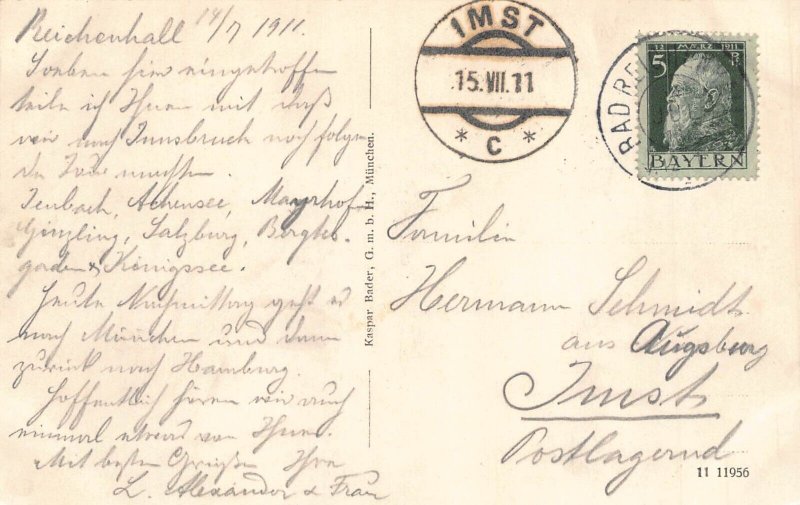 Reichenhall 14/7 1911.
Soeben hier eingetroffen
teile ich Ihnen mit daß
wir nach Innsbruck noch folgen
de Tour machten.
Jenbach, Achensee, Mayrhof
Ginzling, Salzburg, Berghtes-
gaden & Königssee.
Heute Nachmittag geht es
nach München und dann
zurück nach Hamburg.
Hoffentlich hören wir auch
einmal etwas von Ihnen.
Mit besten Grüßen Ihre
L. Alexander & Frau
Kaspar Bader, G. m. b. H., München.
IMST
15.VII.11
* C *
BAD RE
12 MÄRZ 1911
5 P
BAYERN
Familie
Hermann Schmidt
aus Augsburg
Imst
Postlagernd
11 11956